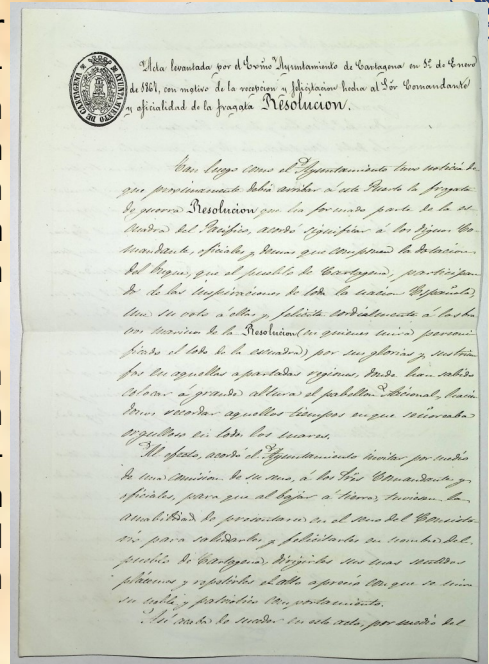 AYUNTAMIENTO DE CARTAGENA
Acta levantada por el Exmo Ayuntamiento de Cartagena en 1º de Enero
de 1867, con motivo de la recepcion y felicitacion hecha al Sor Comandante
y oficialidad de la fragata Resolucion.
Tan luego como el Ayuntamiento tuvo noticia de
que proximamente debia arribar á este Puerto la fragata
de guerra Resolucion que ha formado parte de la es-
cuadra del Pacífico, acordó significar á los dignos Co-
mandante, oficiales y demas que componen la dotacion
del buque, que el pueblo de Cartagena, participan
do de las inspiraciones de toda la nacion Española,
une su voto á ellas y felicita cordialmente á los bra
vos marinos de la Resolucion (en quienes mira personi
ficado el todo de la escuadra) por sus glorias y sus triun
fos en aquellas apartadas regiones, donde han sabido
colocar á grande altura el pabellon Nacional, hacien
donos recordar aquellos tiempos en que señoreaba
orgulloso en todos los mares.
Al efecto, acordó el Ayuntamiento invitar por medio
de una comision de su seno, á los Sres Comandante y
oficiales, para que al bajar á tierra, tuvieran la
amabilidad de presentarse en el seno del Consisto
rio para saludarles y felicitarles en nombre del
pueblo de Cartagena, dirigirles sus mas sentidos
plácemes y repetirles el alto aprecio con que se mira
su noble y patriótico comportamiento.
Asi acaba de suceder en este acto, por medio del